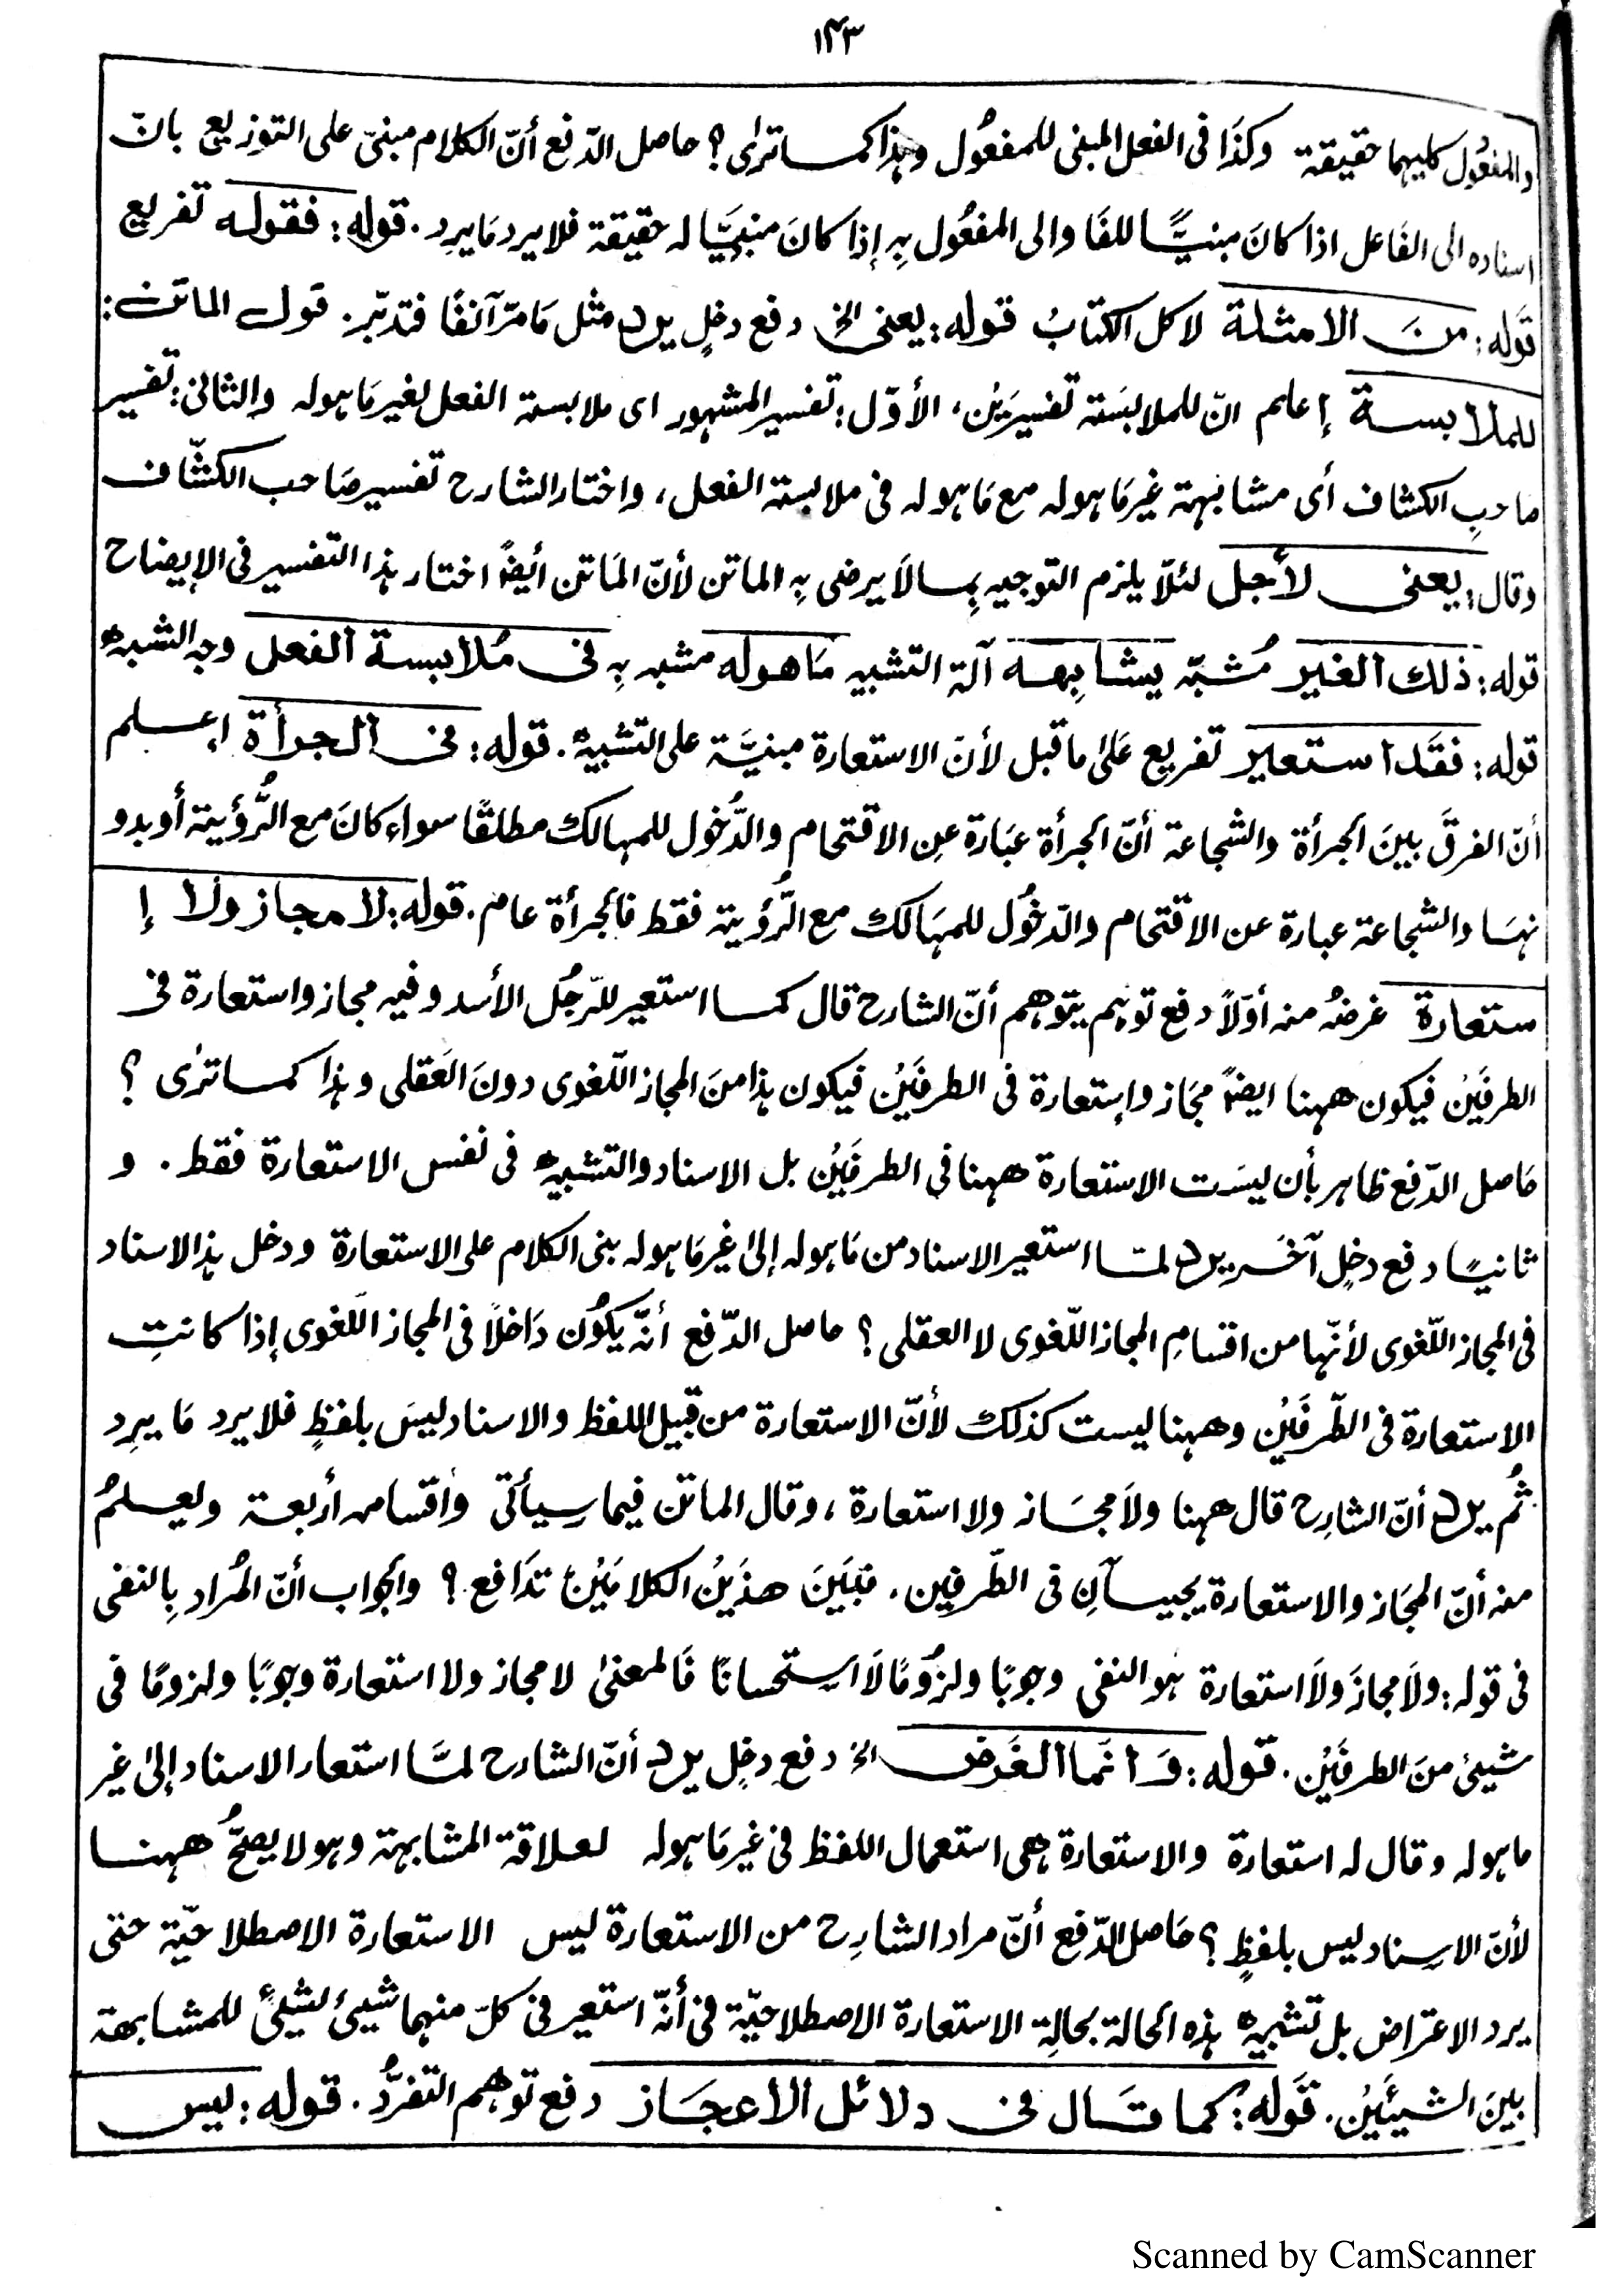 ۱۴۳
والمفعُول كليهما حقيقة وكذَا فى الفعل المبنى للمفعُول وهذا كما ترىٰ؟ حاصل الدّفع أنّ الكلام مبنىّ على التوزيع بانّ
اسناده الى الفَاعل اذا كانَ مبنيًّا للفَا والى المفعُول بِهِ إذا كانَ مَبنِيًّا له حقيقة فلا يرد مَا يرِد. قوله: فقوله تفريع
قوله: منَ الامثلة لا كل الكتَابُ قوله: يعنى الخ دفع دخلٍ يرد مثل مَا مرّ آنفًا فتدبّر. قول الماتن:
للملابسة إعلم انّ للملابسَة تفسيرَيْن، الأوّل: تفسير المشهور اى ملابسة الفعل لغير مَا هو له والثانى: تفسير
صاحبِ الكشاف أى مشابهة غير مَا هو له مع مَا هو له فى ملابسة الفعل، واختار الشارح تفسير صَاحب الكشّاف
وقال: يعنى لأجل لئلّا يلزم التوجيه بِما لاَ يرضى بِهِ الماتن لأنّ المَاتن أيضًا اختار هذا التفسير فى الإيضاح
قوله: ذلك الغير مُشبّه يشابِهه آلة التشبيه مَا هو له مشبه بِهِ فى مُلابسة الفعل وجه الشبه
قوله: فقَد استعير تفريع عَلىٰ ما قبل لأنّ الاستعارة مبنيَّة على التشبيه. قوله: فى الجرأة اعلم
أنّ الفرقَ بينَ الجرأة والشجاعة أنّ الجرأة عبَارة عن الاقتحام والدُّخول للمهالك مطلقًا سواء كانَ مع الرُّؤية أو بدو
نهَا والشجاعة عبارة عن الاقتحام والدّخُول للمهَالك مع الرُّؤية فقط فالجرأة عام. قوله: لا مجاز ولا إ
ستعارة غرضُه منه أوّلاً دفع توهم يتوهم أنّ الشارح قال كما استعير للرّجُل الأسد وفيه مجاز واستعارة فى
الطرفَيْن فيكون ههنا ايضًا مجَاز وإستعارة فى الطرفَيْن فيكون هذا منَ المجاز اللّغوى دونَ العَقلى وهذا كما ترىٰ؟
حَاصل الدّفع ظاهر بأن ليسَت الاستعارة ههنا فى الطرفَيْن بل الاسناد والتشبيه فى نفس الاستعارة فقط. و
ثانيًا دفع دخلٍ آخَر يرد لمّا استعير الاسناد من مَا هو له إلىٰ غير مَا هو له بنى الكلام على الاستعارة ودخل هذا الاسناد
فى المجاز اللّغوى لأنّها من اقسامِ المجاز اللّغوى لا العقلى؟ حاصل الدّفع أنّه يكُون دَاخلاً فى المجاز اللّغوى إذا كانتِ
الاستعارة فى الطّرفَيْن وههنا ليست كذلك لأنّ الاستعارة من قبيل اللفظ والاسناد ليسَ بلفظٍ فلا يرد مَا يرِد
ثُم يرد أنّ الشارِح قال ههنا ولاَ مجَاز ولا استعارة، وقال الماتن فيما سيأتى وأقسامه أربعة ويعلمُ
منه أنّ المجَاز والاستعارة يجيئآنِ فى الطّرفين. فبَينَ هذَيْن الكلامَيْن تدَافع؟ والجواب أنّ المُراد بِالنفى
فى قوله: ولاَ مجازَ ولاَ استعارة هو النفى وجوبًا ولزُومًا لاَ استحسانًا فَالمعنىٰ لا مجاز ولا استعارة وجوبًا ولزومًا فى
شيئ منَ الطرفَيْن. قوله: وَانّما الغَرض الخ دفع دخلٍ يرد أنّ الشارح لمَّا استعار الاسناد إلىٰ غير
ما هو له وقال له استعارة والاستعارة هى استعمال اللفظ فى غير مَا هو له لعلاقة المشابهة وهو لا يصحُّ ههنا
لأنّ الاسناد ليس بلفظٍ؟ حَاصل الدّفع أنّ مراد الشارِح من الاستعارة ليس الاستعارة الاصطلاحيّة حتى
يرد الاعتراض بل تشبيه هذه الحالة بحالةِ الاستعارة الاصطلاحيّة فى أنّه استعير فى كلّ منهما شيئ لشيئٍ للمشابهة
بينَ الشيئَيْن. قوله: كما قَال فى دلائل الأعجَاز دفع توهم التفرُّد. قوله: ليس
Scanned by CamScanner